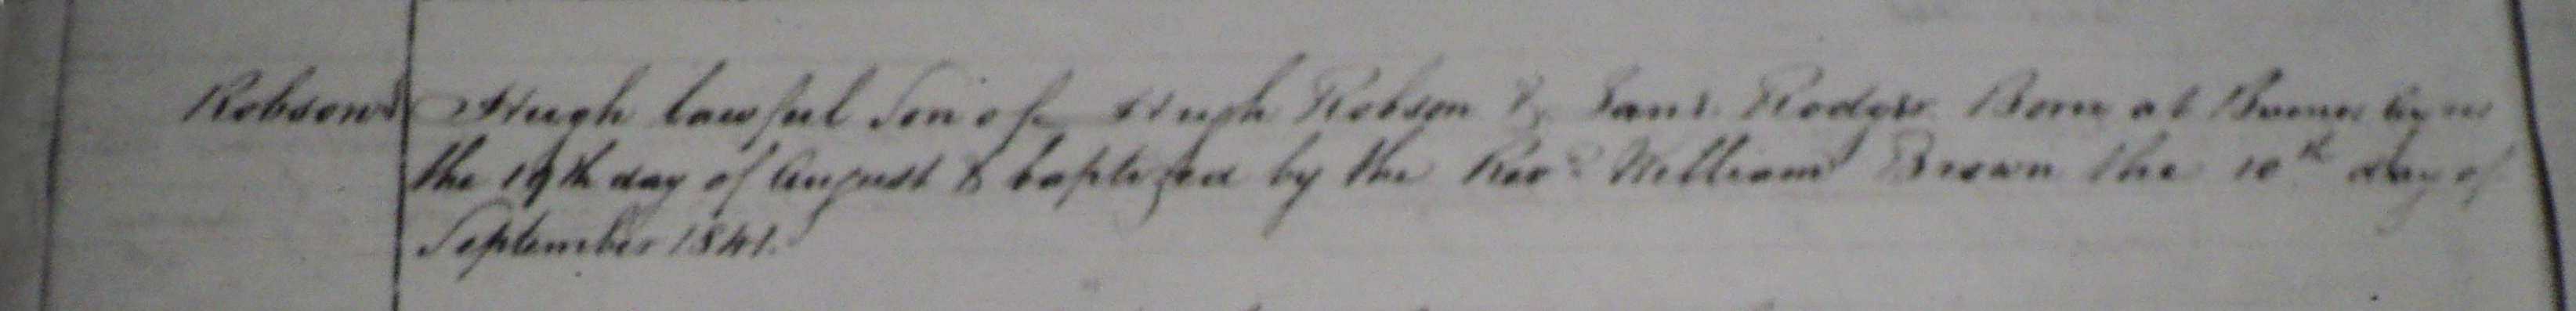 Robson Hugh lawful Son of Hugh Robson & Jane Rodger Born at
the 19th day of August & baptized by the Revd William Brown the 10th day of
September 1841.